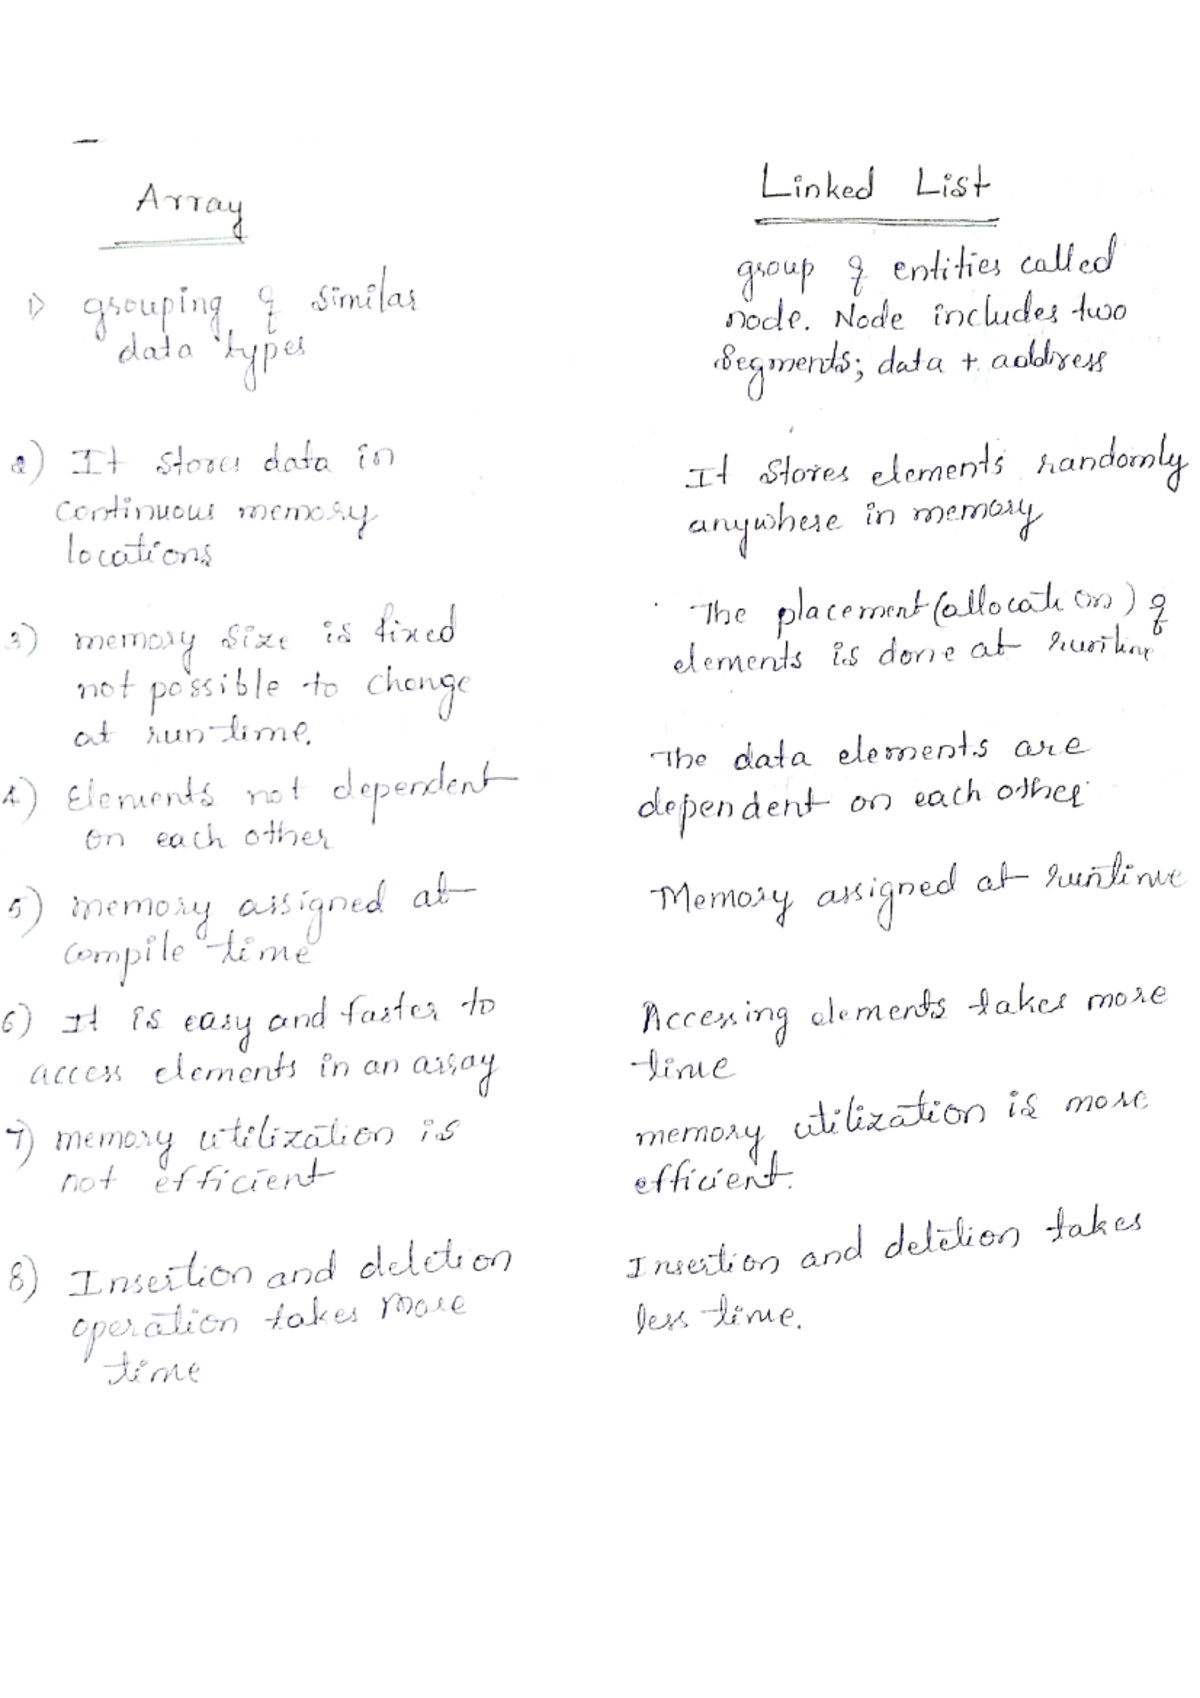 Array
1) grouping of similar
data types
2) It stores data in
continuous memory
locations
3) memory size is fixed
not possible to change
at run-time.
4) Elements not dependent
on each other
5) memory assigned at
compile time
6) It is easy and faster to
access elements in an array
7) memory utilization is
not efficient
8) Insertion and deletion
operation takes more
time
Linked List
group of entities called
node. Node includes two
segments; data + address
It stores elements randomly
anywhere in memory
The placement (allocation) of
elements is done at runtime
The data elements are
dependent on each other
Memory assigned at runtime
Accessing elements takes more
time
memory utilization is more
efficient.
Insertion and deletion takes
less time.